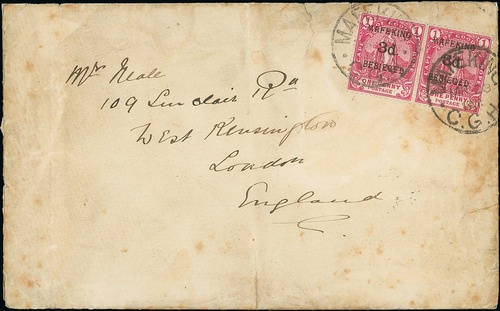 Mrs Neall
109 Sinclair Rd
West Kensington
London
England
MAFEKING
C.G.H
MAFEKING
3d
BESIEGED
ONE PENNY
POSTAGE
MAFEKING
3d
BESIEGED
ONE PENNY
POSTAGE